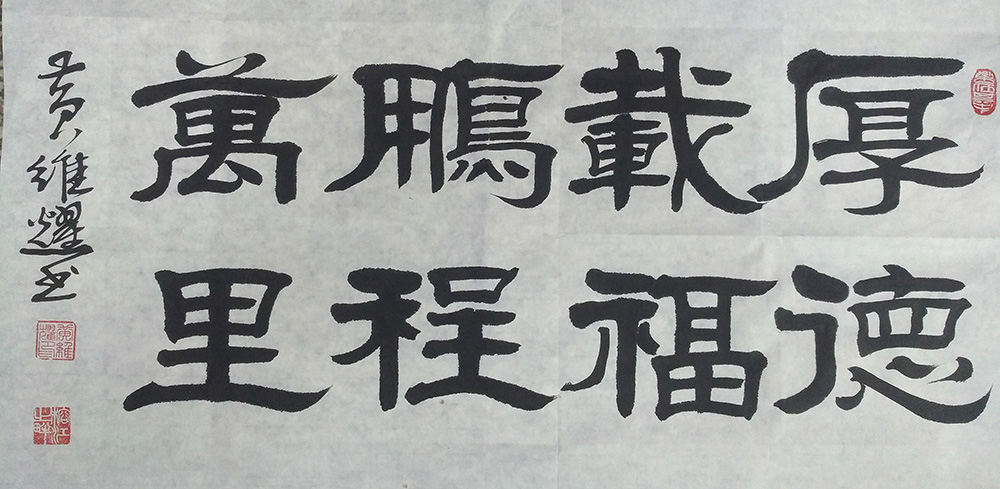 厚德
載福
鵬程
萬里
黄維耀书